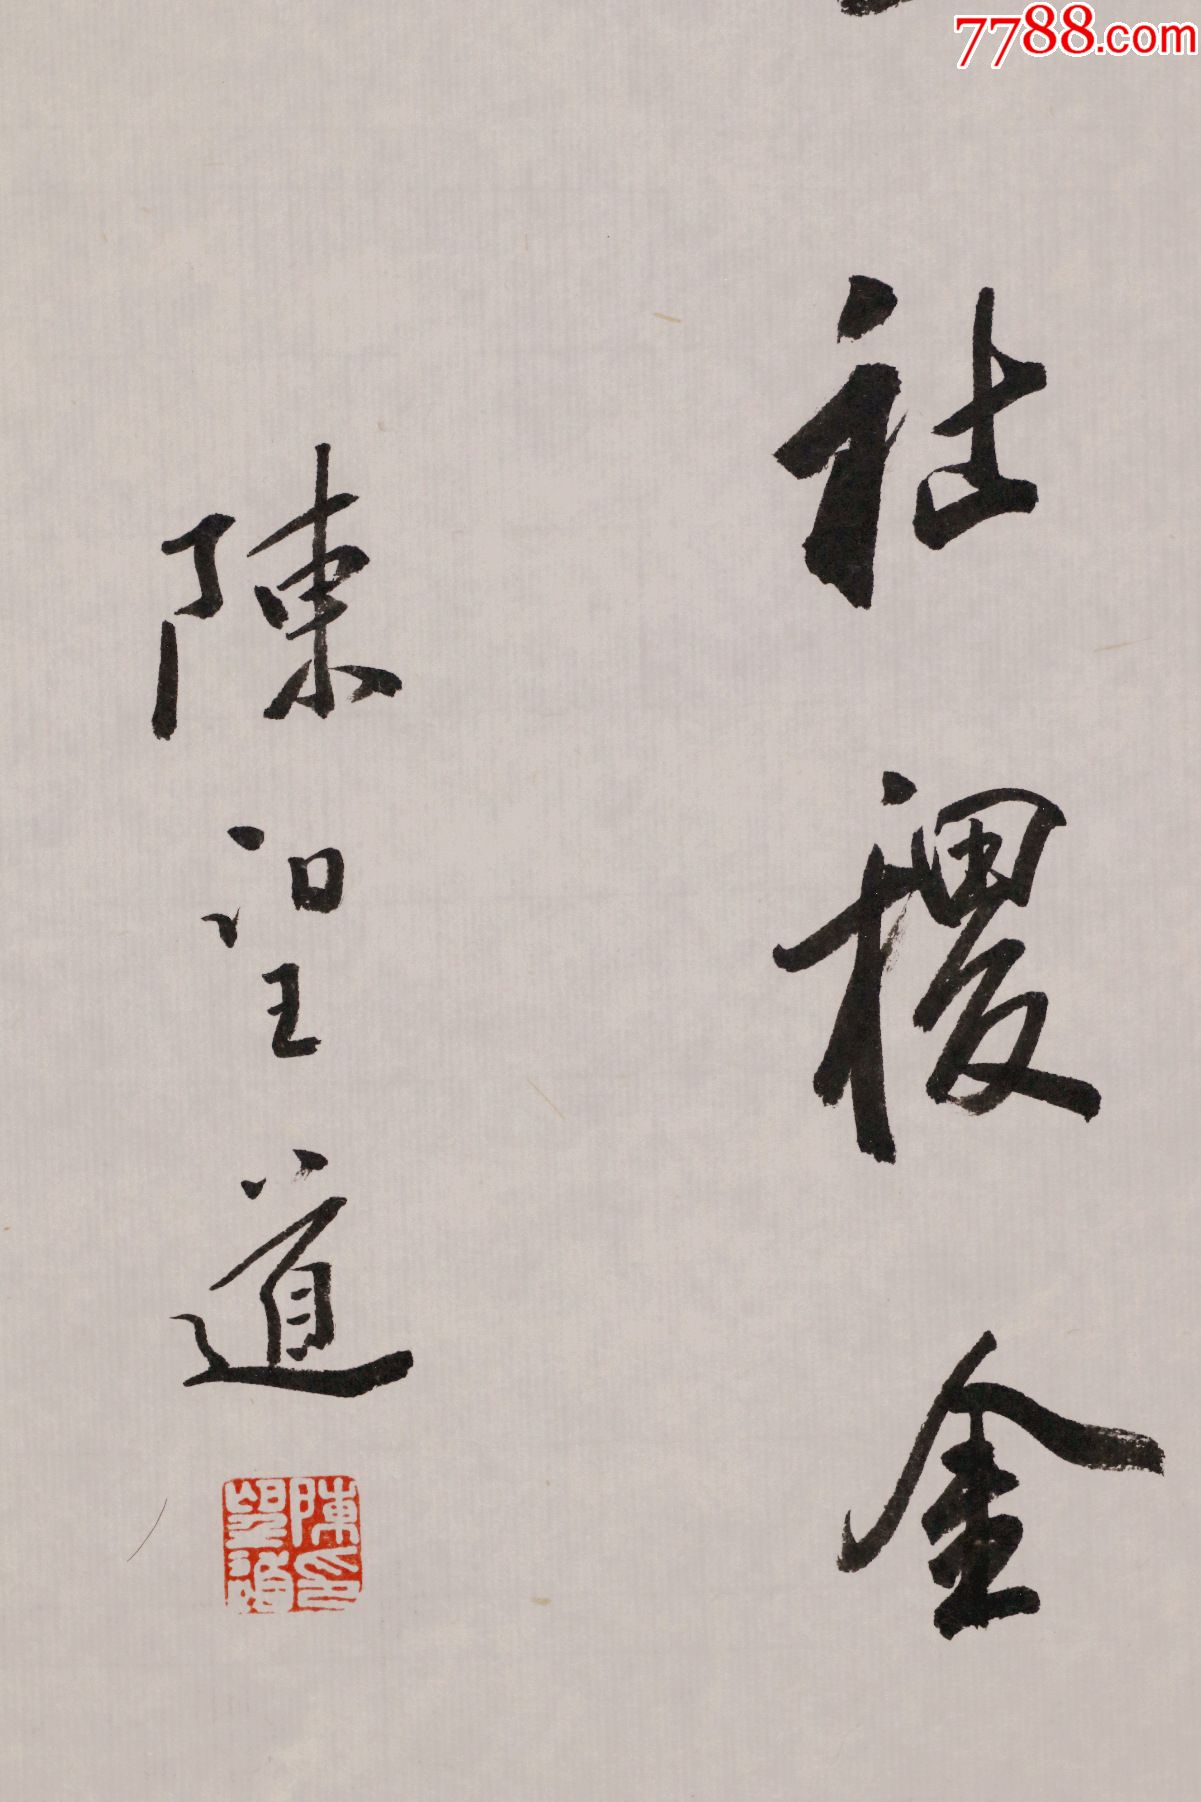 7788.com
社稷金
陳望道
陳印望道